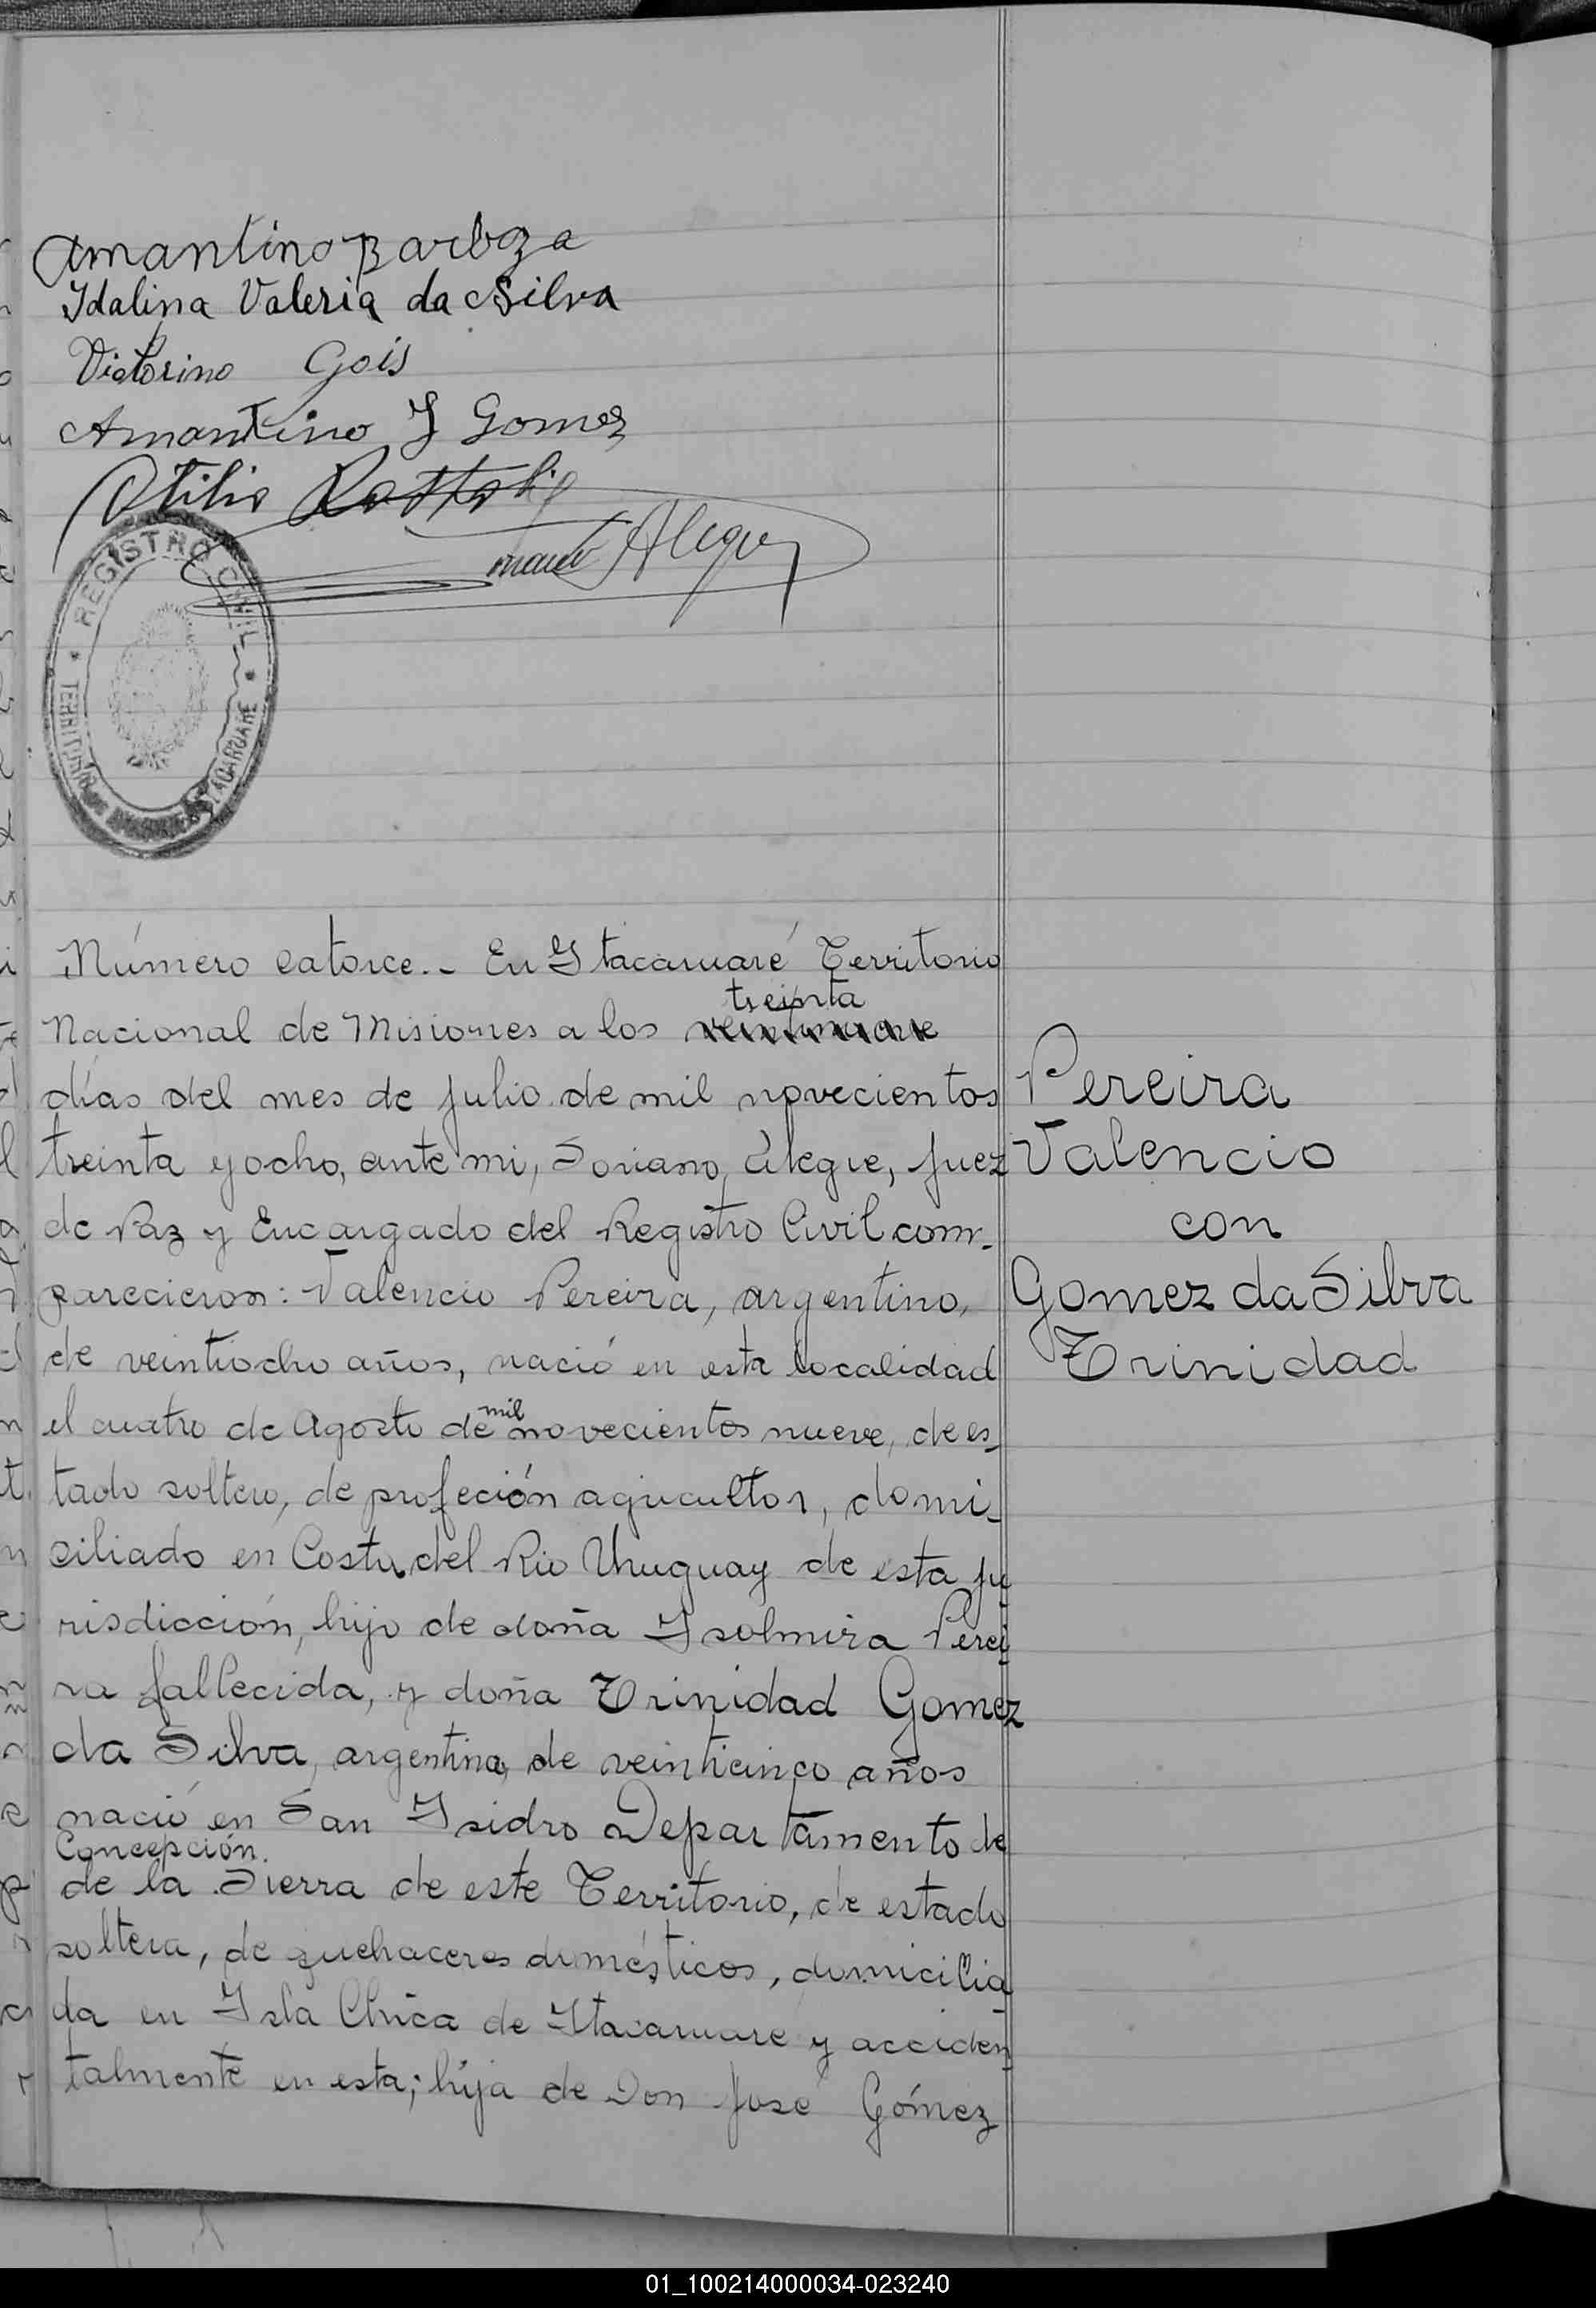 Amantino Barboza
Idalina Valeria da Silva
Victorino Gois
Amantino J Gomez
Otilio
Alegre
REGISTRO CIVIL
TERRITORIO DE MISIONES ITACARUARE
Número catorce.- En Itacaruaré Territorio
treinta
Nacional de Misiones a los veintinueve
días del mes de julio de mil novecientos
treinta y ocho, ante mi, Soriano Alegre, Juez
de Paz y Encargado del Registro Civil com-
parecieron: Valencio Pereira, argentino,
de veintiocho años, nació en esta localidad
mil
el cuatro de Agosto de novecientos nueve, de es-
tado soltero, de profeción agricultor, domi-
ciliado en Costa del Rio Uruguay de esta ju-
risdicción, hijo de doña Isolmira Perei-
ra fallecida, y doña Trinidad Gomez
da Silva, argentina, de veinticinco años
nació en San Isidro Departamento de
Concepción.
de la Sierra de este Territorio, de estado
soltera, de quehaceres domésticos, domicilia-
da en Isla Chica de Itacaruare y acciden-
talmente en esta; hija de Don José Gómez
Pereira
Valencio
con
Gomez da Silva
Trinidad
01_100214000034-023240